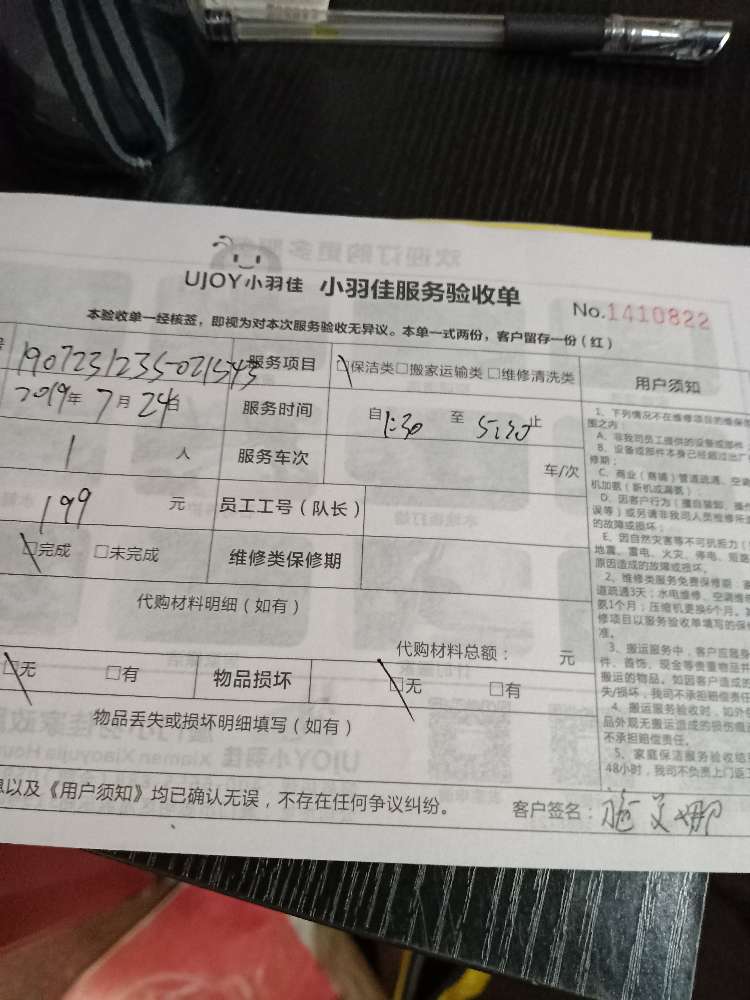 UJOY小羽佳 小羽佳服务验收单 No.1410822
本验收单一经核签，即视为对本次服务验收无异议。本单一式两份，客户留存一份（红）
1907231235021543 服务项目 □保洁类□搬家运输类□维修清洗类
2019年7月24日 服务时间 自1:30 至 5:30止
1 人 服务车次 车/次
199 元 员工工号（队长）
□完成 □未完成 维修类保修期
代购材料明细（如有）
代购材料总额： 元
□无 □有 物品损坏 □无 □有
物品丢失或损坏明细填写（如有）
以及《用户须知》均已确认无误，不存在任何争议纠纷。 客户签名：施美娜
用户须知
1、下列情况不在维修项目的维保范
围之内：
A、非我司员工提供的设备或部件
B、设备或部件本身已经超过出厂
修期；
C、商业（商铺）管道疏通、空调
机加氨（新机或漏氨）
D、因客户行为（擅自装卸、操作
误等）或另请非我司人员维修所
的故障或损坏；
E、因自然灾害等不可抗拒力（
地震、雷电、火灾、停电、短路
原因造成的故障或损坏。
2、维修类服务免费保修期：
道疏通3天；水电维修、空调维修
氨1个月；压缩机更换6个月。
修项目以服务验收单填写的保修
准。
3、搬运服务中，客户应随身
件、首饰、现金等贵重物品
搬运的物品。如因客户造成的
失/损坏，我司不承担赔偿责任
4、搬运服务验收时，如外包
品外观无搬运造成的损伤痕
不承担赔偿责任。
5、家庭保洁服务验收结
48小时，我司不负责上门返工